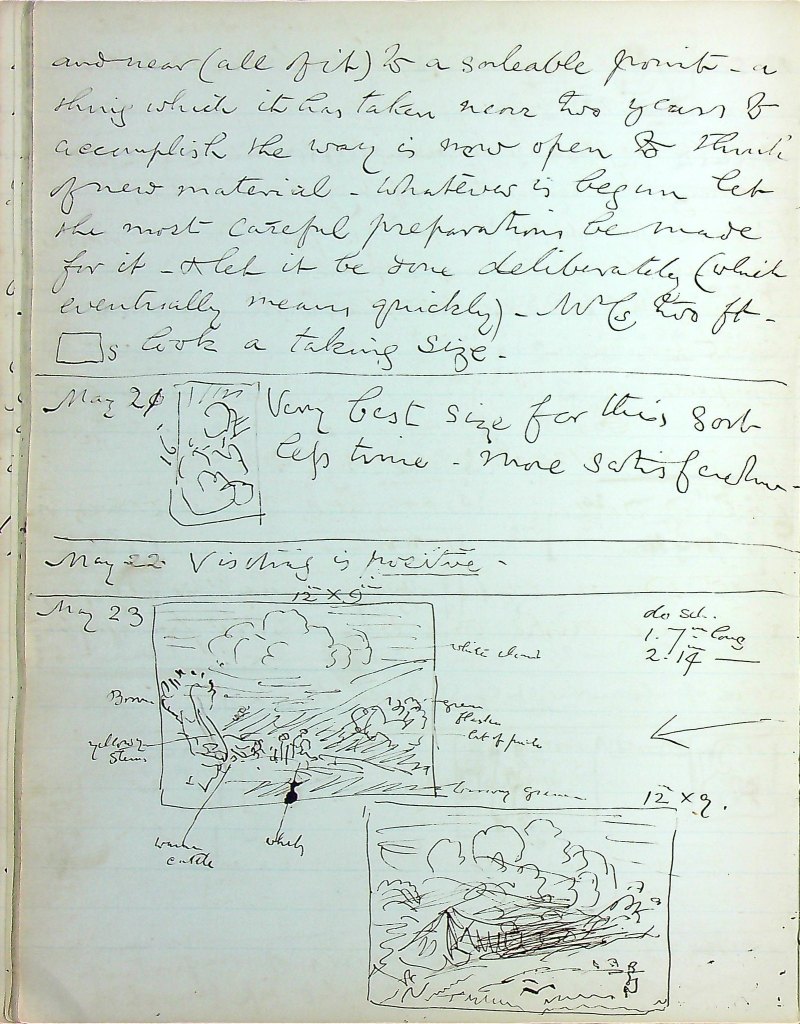 and near (all of it) to a saleable point - a
thing which it has taken near two years to
accomplish the way is now open to think
of new material - Whatever is begun let
the most careful preparations be made
for it - & let it be done deliberately (which
eventually means quickly) - two ft -
s look a taking size -
May 21 Very best size for this sort
less time - more satisfaction -
May 22 Visiting is positive -
May 23
12 x 9
do sch.
1. 7 in long
2. 14 —
white cloud
Brown
green
yellowy
stems
lot of pink
browny green
12 x 9.
warm
cattle